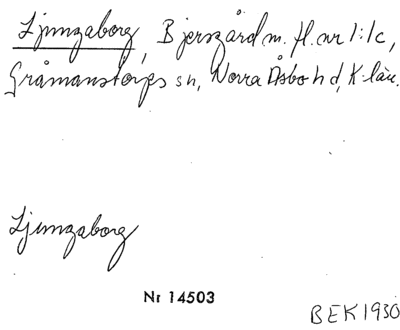 Ljungaborg, Bjersgård m. fl. nr 1:1c,
Gråmanstorps sn, Norra Åsbo hd, K-län.
Ljungaborg
Nr 14503
BEK 1930